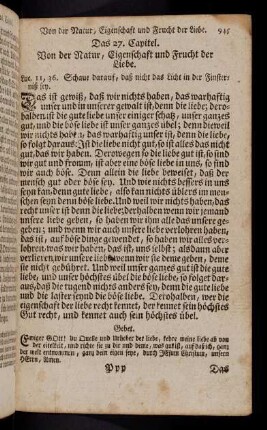 Von der Natur, Eigenschaft und Frucht der Liebe. 945
Das 27. Capitel.
Von der Natur, Eigenschaft und Frucht der
Liebe.
Luc. 11, 36. Schaue darauf, daß nicht das Licht in dir Finster-
niß sey.
Das ist gewiß, daß wir nichts haben, das warhaftig
unser und in unserer gewalt ist, denn die liebe; dero-
halben ist die gute liebe unser einiger schatz, unser ganzes
gut, und die böse liebe ist unser ganzes übel; denn dieweil
wir nichts haben, das warhaftig unser ist, denn die liebe,
so folgt daraus: Ist die liebe nicht gut, so ist alles das nicht
gut, das wir haben. Derowegen so die liebe gut ist, so sind
wir gut und fromm, ist aber eine böse liebe in uns, so sind
wir auch böse. Denn allein die liebe beweiset, daß der
mensch gut oder böse sey. Und wie nichts bessers in uns
seyn kan, denn gute liebe, also kan nichts üblers im men-
schen seyn denn böse liebe. Und weil wir nichts haben, das
recht unser ist denn die liebe; derhalben wenn wir jemand
unsere liebe geben, so haben wir ihm alle das unsere ge-
geben; und wenn wir auch unsere liebe verlohren haben,
das ist, auf böse dinge gewendet, so haben wir alles ver-
lohren, was wir haben, das ist, uns selbst; alsdann aber
verlieren wir unsere liebe, wenn wir sie deme geben, deme
sie nicht gebühret. Und weil unser ganzes gut ist die gute
liebe, und unser höchstes übel die böse liebe, so folget dar-
aus, daß die tugend nichts anders sey, denn die gute liebe
und die laster seynd die böse liebe. Derohalben, wer die
eigenschaft der liebe recht kennet, der kennet sein höchstes
Gut recht, und kennet auch sein höchstes übel.
Gebet.
Ewiger GOtt! du Quelle und Urheber der liebe, kehre meine liebe ab von
der eitelkeit, und richte sie zu dir und deme, was gut ist, auf daß ich, ganz
der welt entnommen, ganz dein eigen seye, durch JEsum Christum, unsern
HErrn, Amen.
Ppp Das